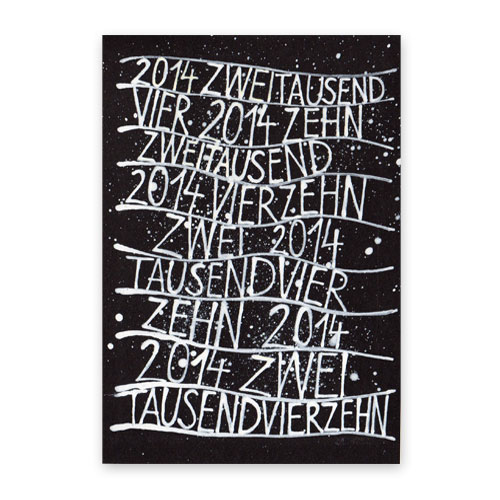 2014 ZWEITAUSEND
VIER 2014 ZEHN
ZWEITAUSEND
2014 VIERZEHN
ZWEI 2014
TAUSENDVIER
ZEHN 2014
2014 ZWEI
TAUSENDVIERZEHN